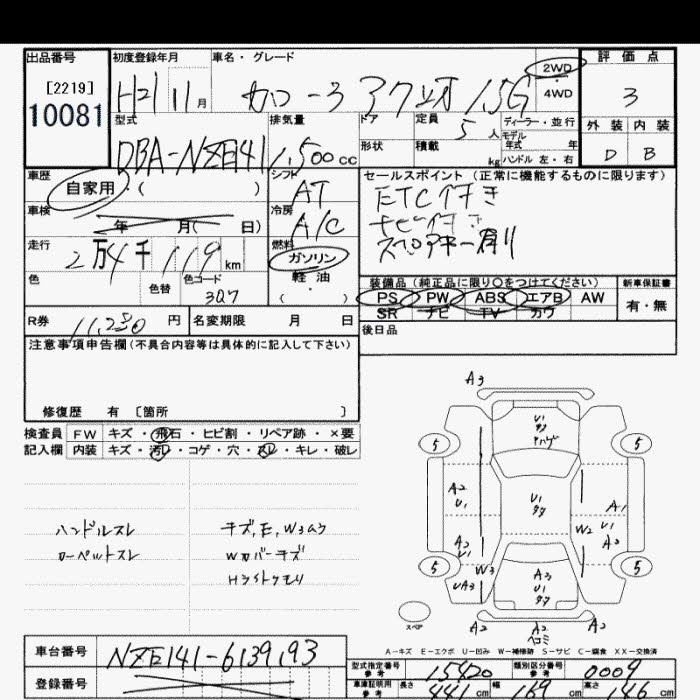 出品番号
[2219]
10081
初度登録年月
H21 11月
車名・グレード
カローラ アクシオ 1.5G
2WD
4WD
評価点
3
外装 内装
D B
型式
DBA-NZE141
排気量
1,500cc
ドア
形状
定員
5人
積載
kg
ディーラー・並行
モデル
年式 年
ハンドル 左・右
車歴
自家用・( )
シフト
AT
車検
年 月( 日)
冷房
A/C
走行
2万4千119km
燃料
ガソリン
軽油
( )
色
色替
色コード
3Q7
セールスポイント(正常に機能するものに限ります)
ETC付き
ナビ付き
スペアキー有り
装備品(純正品に限り〇をつけてください)
PS PW ABS エアB AW
SR ナビ TV カワ
新車保証書
有・無
R券
11,230円
名変期限 月 日
後日品
注意事項申告欄(不具合内容等は具体的に記入して下さい)
修復歴 有 〔箇所 〕
検査員 FW キズ・飛石・ヒビ割・リペア跡・×要
記入欄 内装 キズ・汚レ・コゲ・穴・スレ・キレ・破レ
ハンドルスレ
カーペットスレ
キズ,E,W3ムラ
Wカバーキズ
Hライトクモリ
A3
U1
5
5
A2
U1
U1
A1
U1
A2
W2
A2
U1
W3
UA3
A3
U1
5
5
スペア
A2
ヘコミ
A-キズ E-エクボ U-凹み W-補修跡 S-サビ C-腐食 XX-交換済
車台番号
NZE141-6139193
登録番号
型式指定番号
参考
15420
類別区分番号
参考
0009
車庫証明用
参考
長さ
441cm
幅
169cm
高さ
146cm